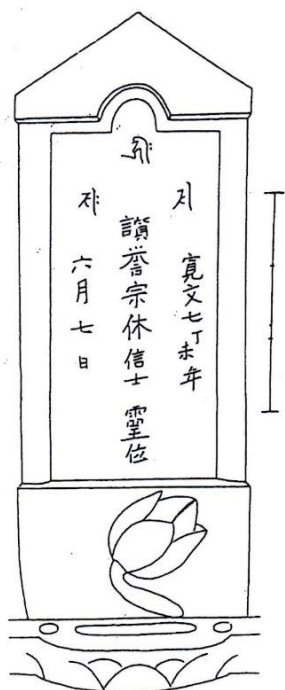 𑖮𑖿𑖨𑖱𑖾
𑖭 寛文七丁未年
讃誉宗休信士 霊位
𑖭𑖾 六月七日